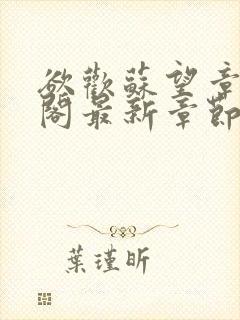 欲歡蘇望章
閣最新章節
葉瑾昕